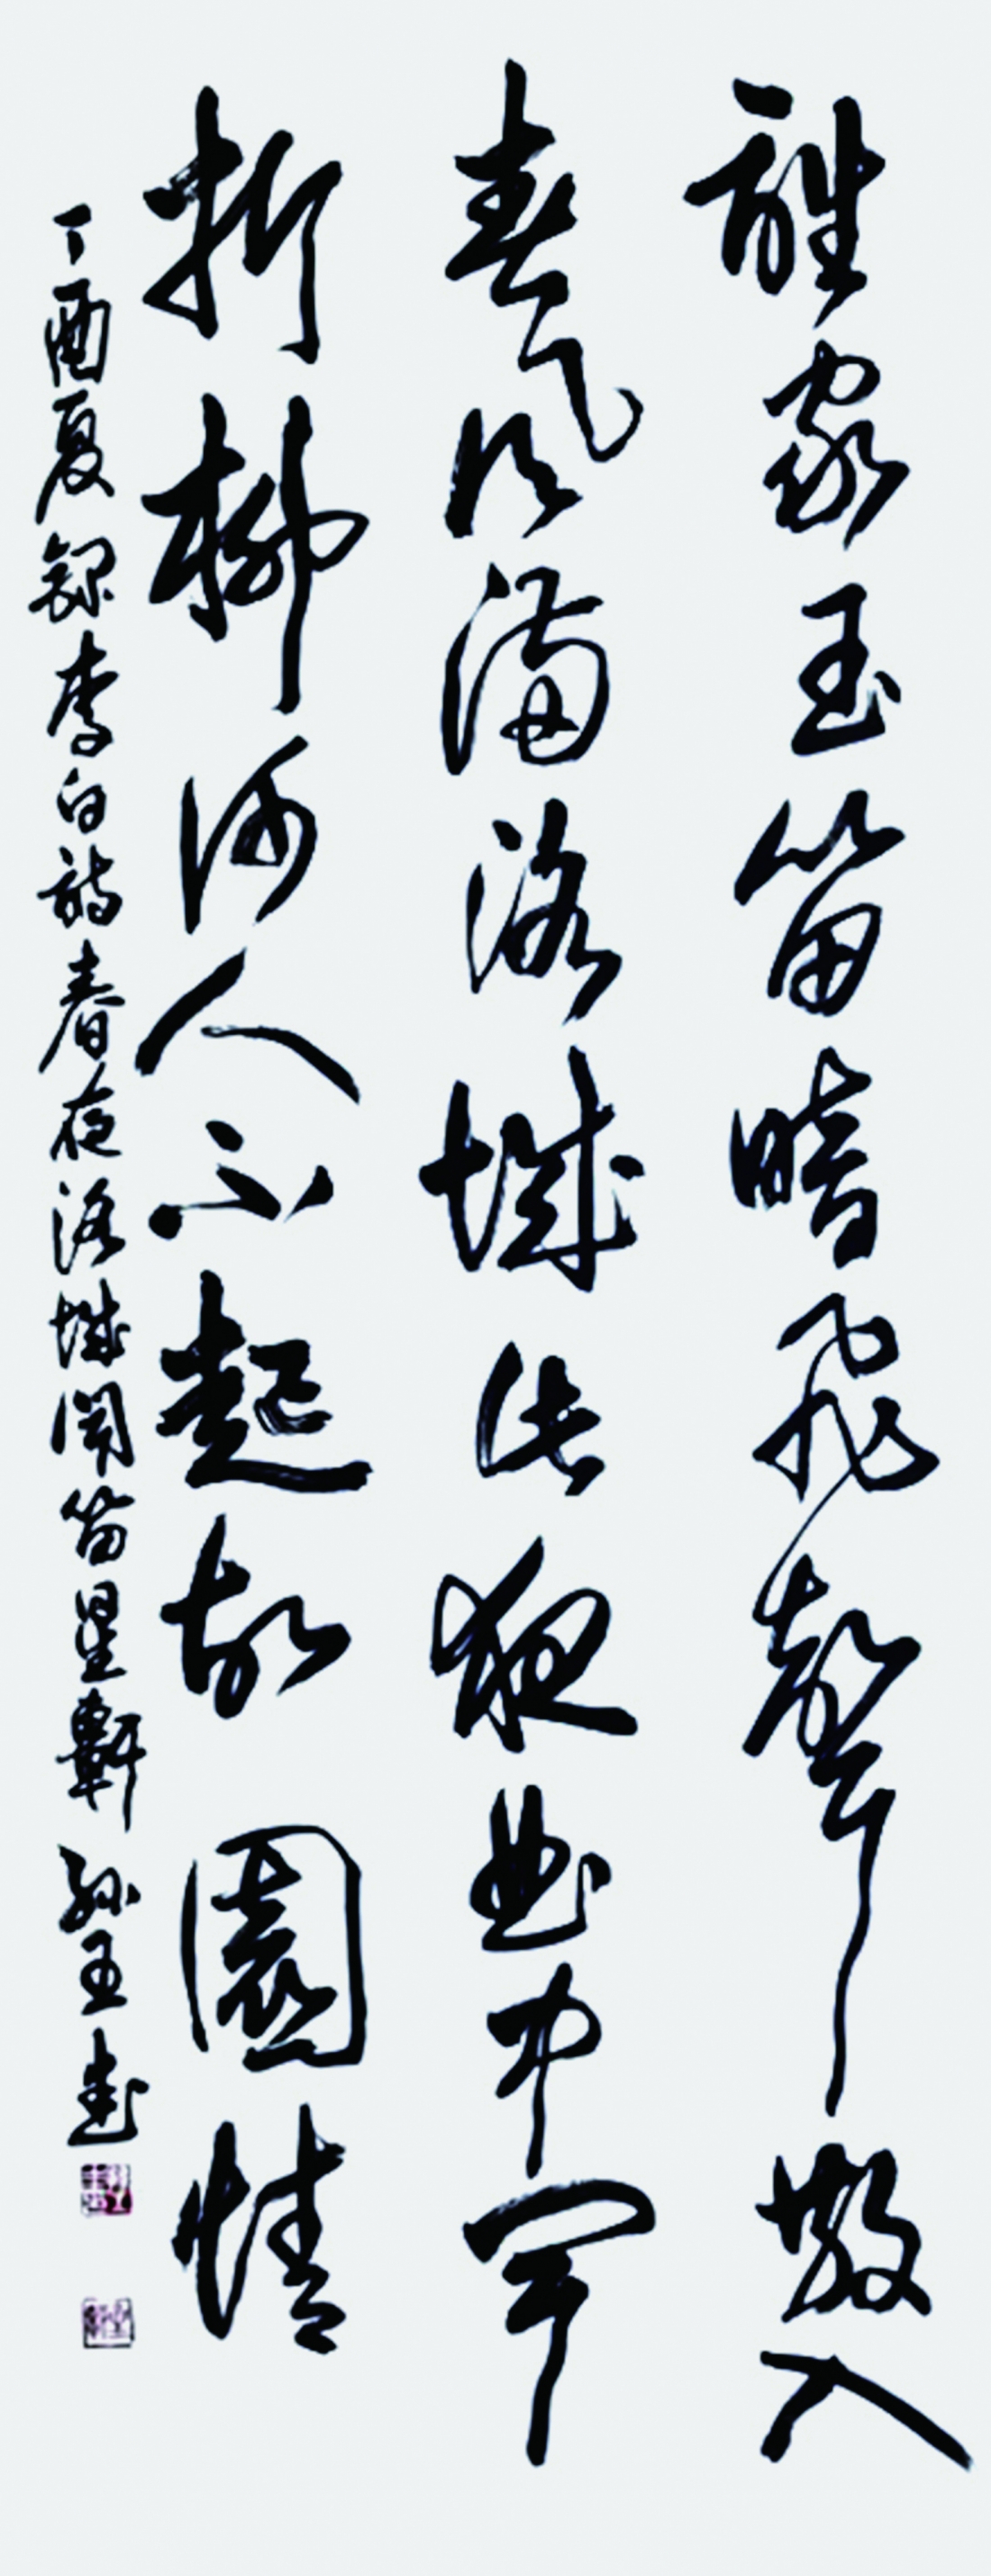 誰家玉笛暗飛聲散入
春風滿洛城此夜曲中聞
折柳何人不起故園情
丁酉夏錄李白詩春夜洛城聞笛軒孫書